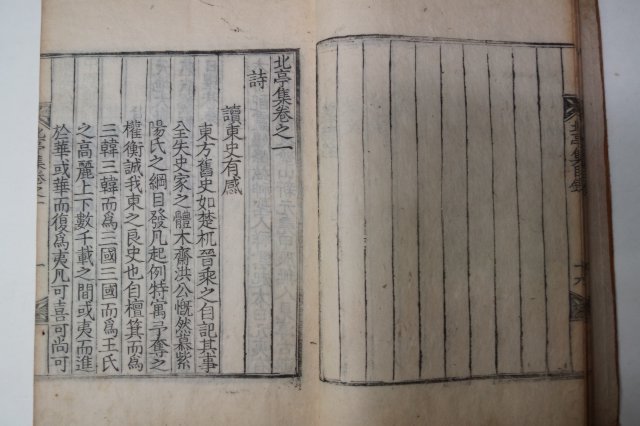 北亭集卷之一
詩
讀東史有感
東方舊史如楚杌晉乘之自記其事
全失史家之體木齋洪公慨然慕紫
陽氏之綱目發凡起例特寓予奪之
權衡誠我東之良史也自檀箕而爲
三韓三韓而爲三國三國而爲王氏
之高麗上下數千載之間或夷而進
於華或華而復爲夷凡可喜可尙可